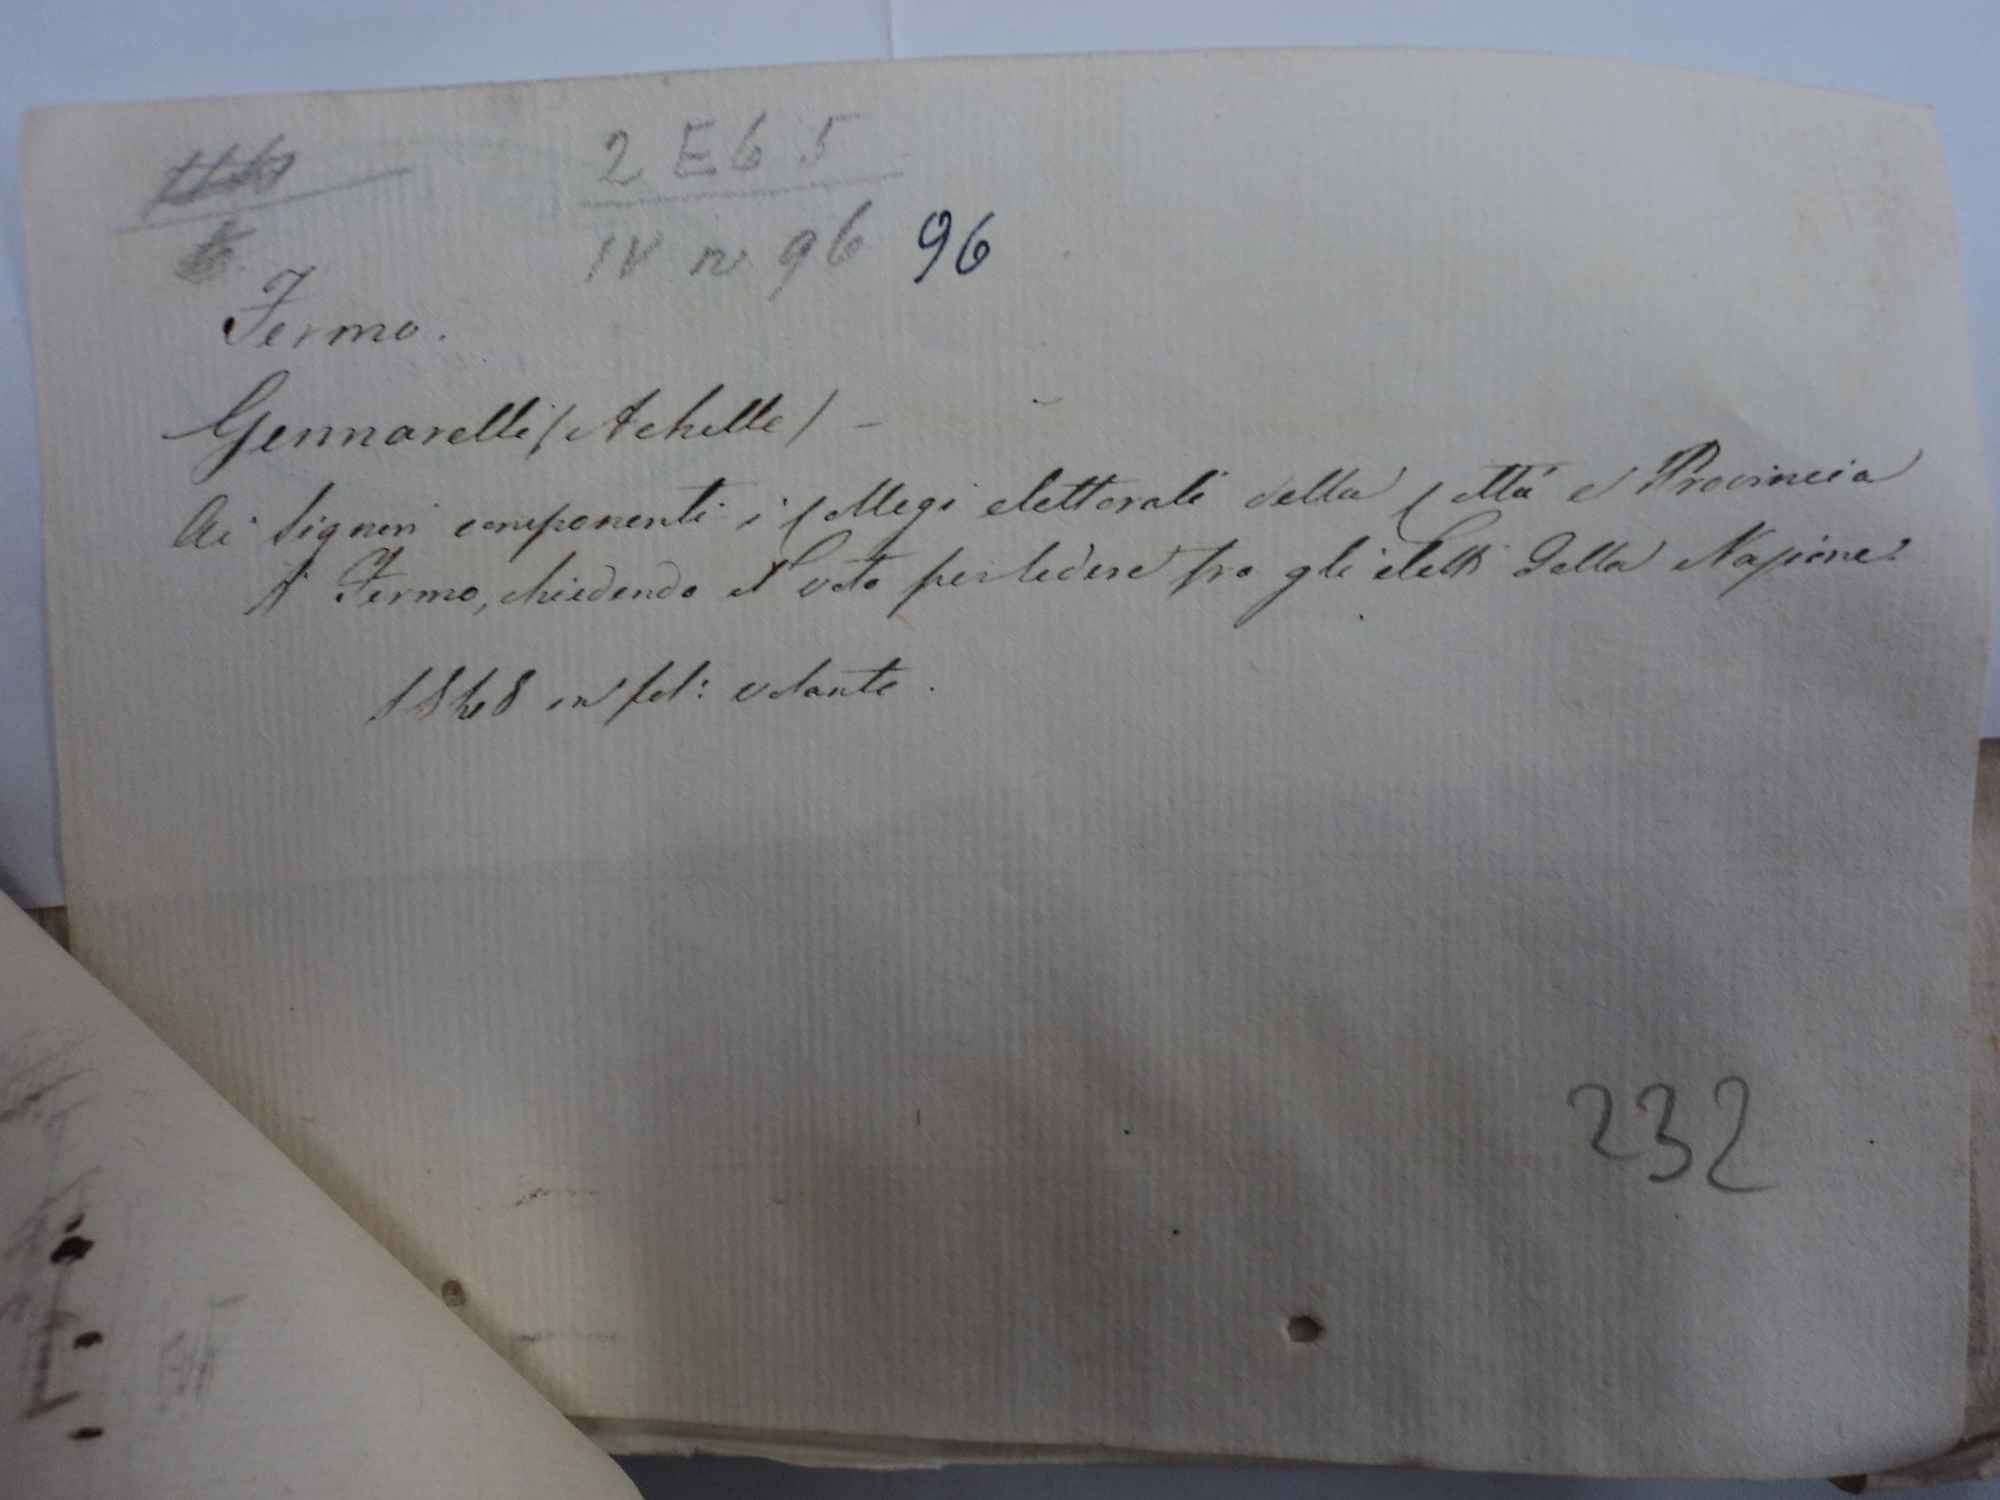 2 E 6 5
IV n 96 96
Fermo.
Gennarelli (Achille) -
Ai Signori componenti i Collegi elettorali della Città e Provincia
di Fermo, chiedendo il voto per sedere fra gli eletti della Nazione.
1848 in fol: volante.
232